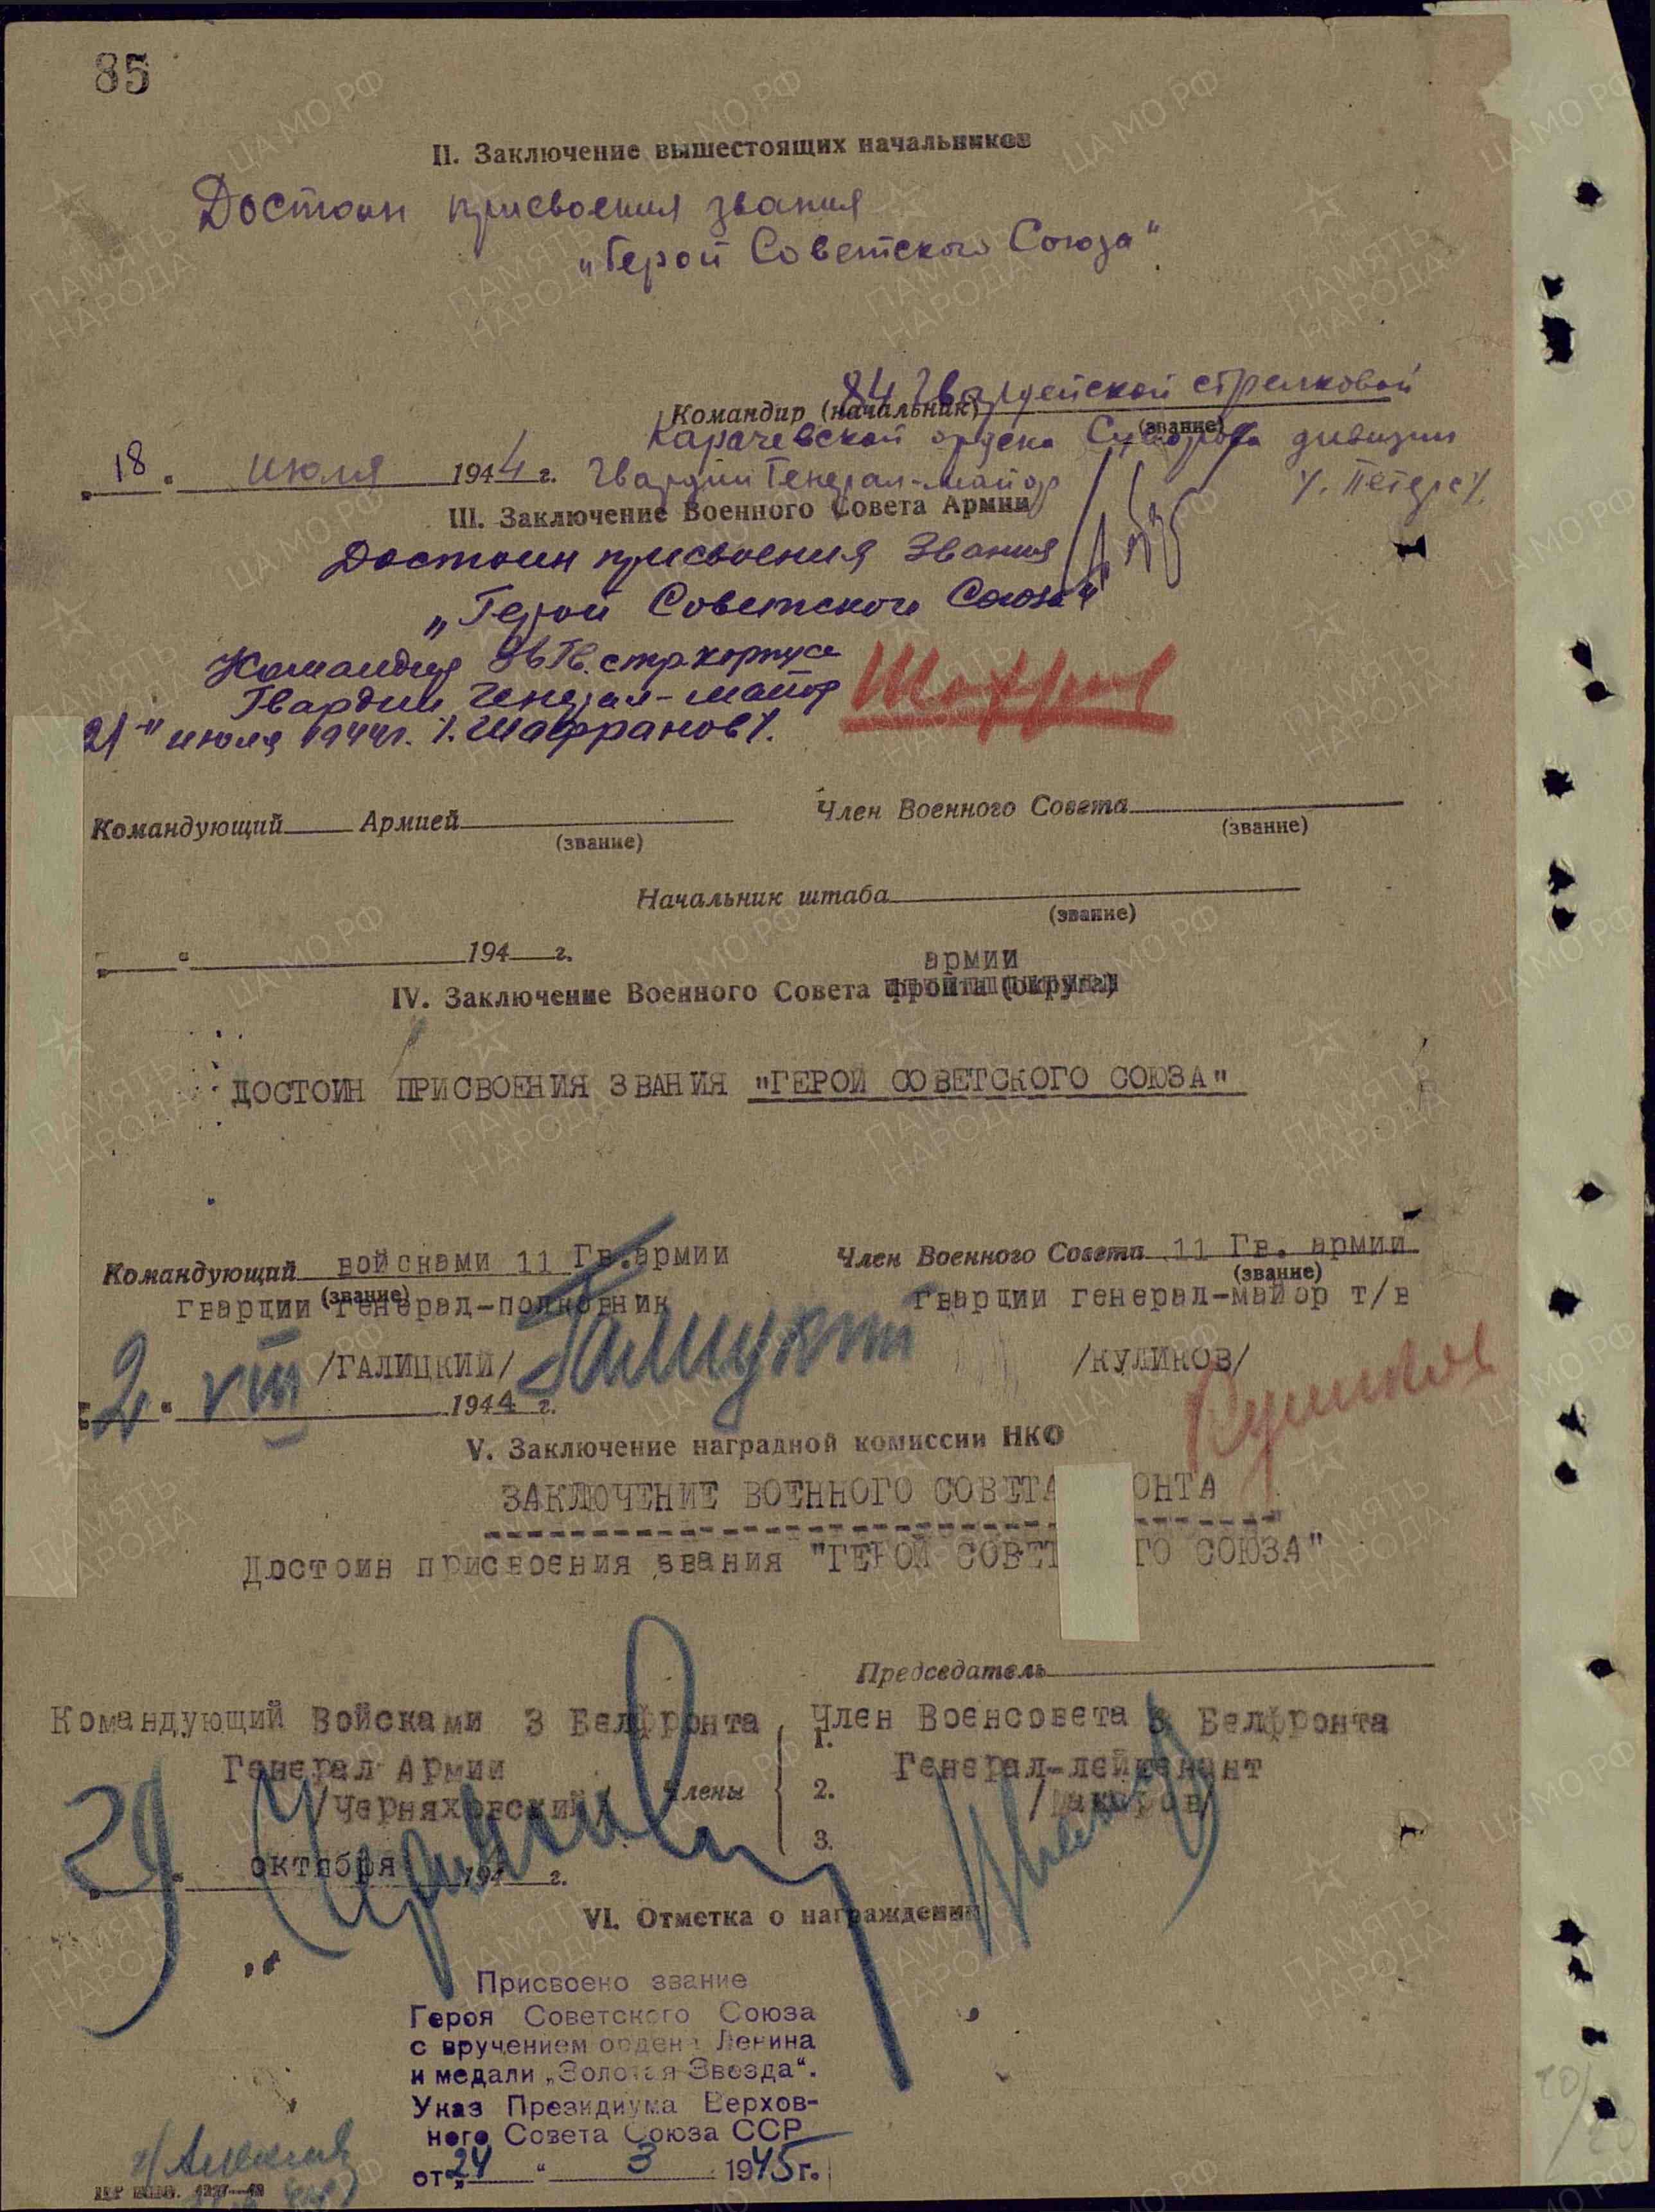 85
II. Заключение вышестоящих начальников
Достоин присвоения звания
„Герой Советского Союза"
84 Гвардейской стрелковой
Командир (начальник)
(звание)
Карачевской ордена Суворова дивизии
„18" июля 1944 г. Гвардии Генерал-майор /. Петерс/.
III. Заключение Военного Совета Армии
Достоин присвоения Звания
„Герой Советского Союза"
Командир 8 Гв. стр. корпуса
Гвардии Генерал-майор
21" июля 1944г. /. Шафранов/.
Командующий Армией
(звание)
Член Военного Совета
(звание)
Начальник штаба
(звание)
„ " 194 г.
армии
IV. Заключение Военного Совета фронта (округа)
ДОСТОИН ПРИСВОЕНИЯ ЗВАНИЯ "ГЕРОЙ СОВЕТСКОГО СОЮЗА"
Командующий войсками 11 Гв. армии
(звание)
гвардии генерал-полковник
/ГАЛИЦКИЙ/
„2" VIII 1944 г.
Член Военного Совета 11 Гв. армии
(звание)
гвардии генерал-майор т/в
/КУЛИКОВ/
V. Заключение наградной комиссии НКО
ЗАКЛЮЧЕНИЕ ВОЕННОГО СОВЕТА ОНТА
Достоин присвоения звания "ГЕРОЙ СОВЕТ ГО СОЮЗА"
Председатель
Командующий Войсками 3 Белфронта
Генерал Армии
/Черняховский/
29 октября 194 г.
Члены
1.
2.
3.
Член Военсовета 3 Белфронта
Генерал-лейтенант
/Макаров/
VI. Отметка о награждении
Присвоено звание
Героя Советского Союза
с вручением ордена Ленина
и медали „Золотая Звезда".
Указ Президиума Верхов-
ного Совета Союза ССР
от „24" 3 1945 г.